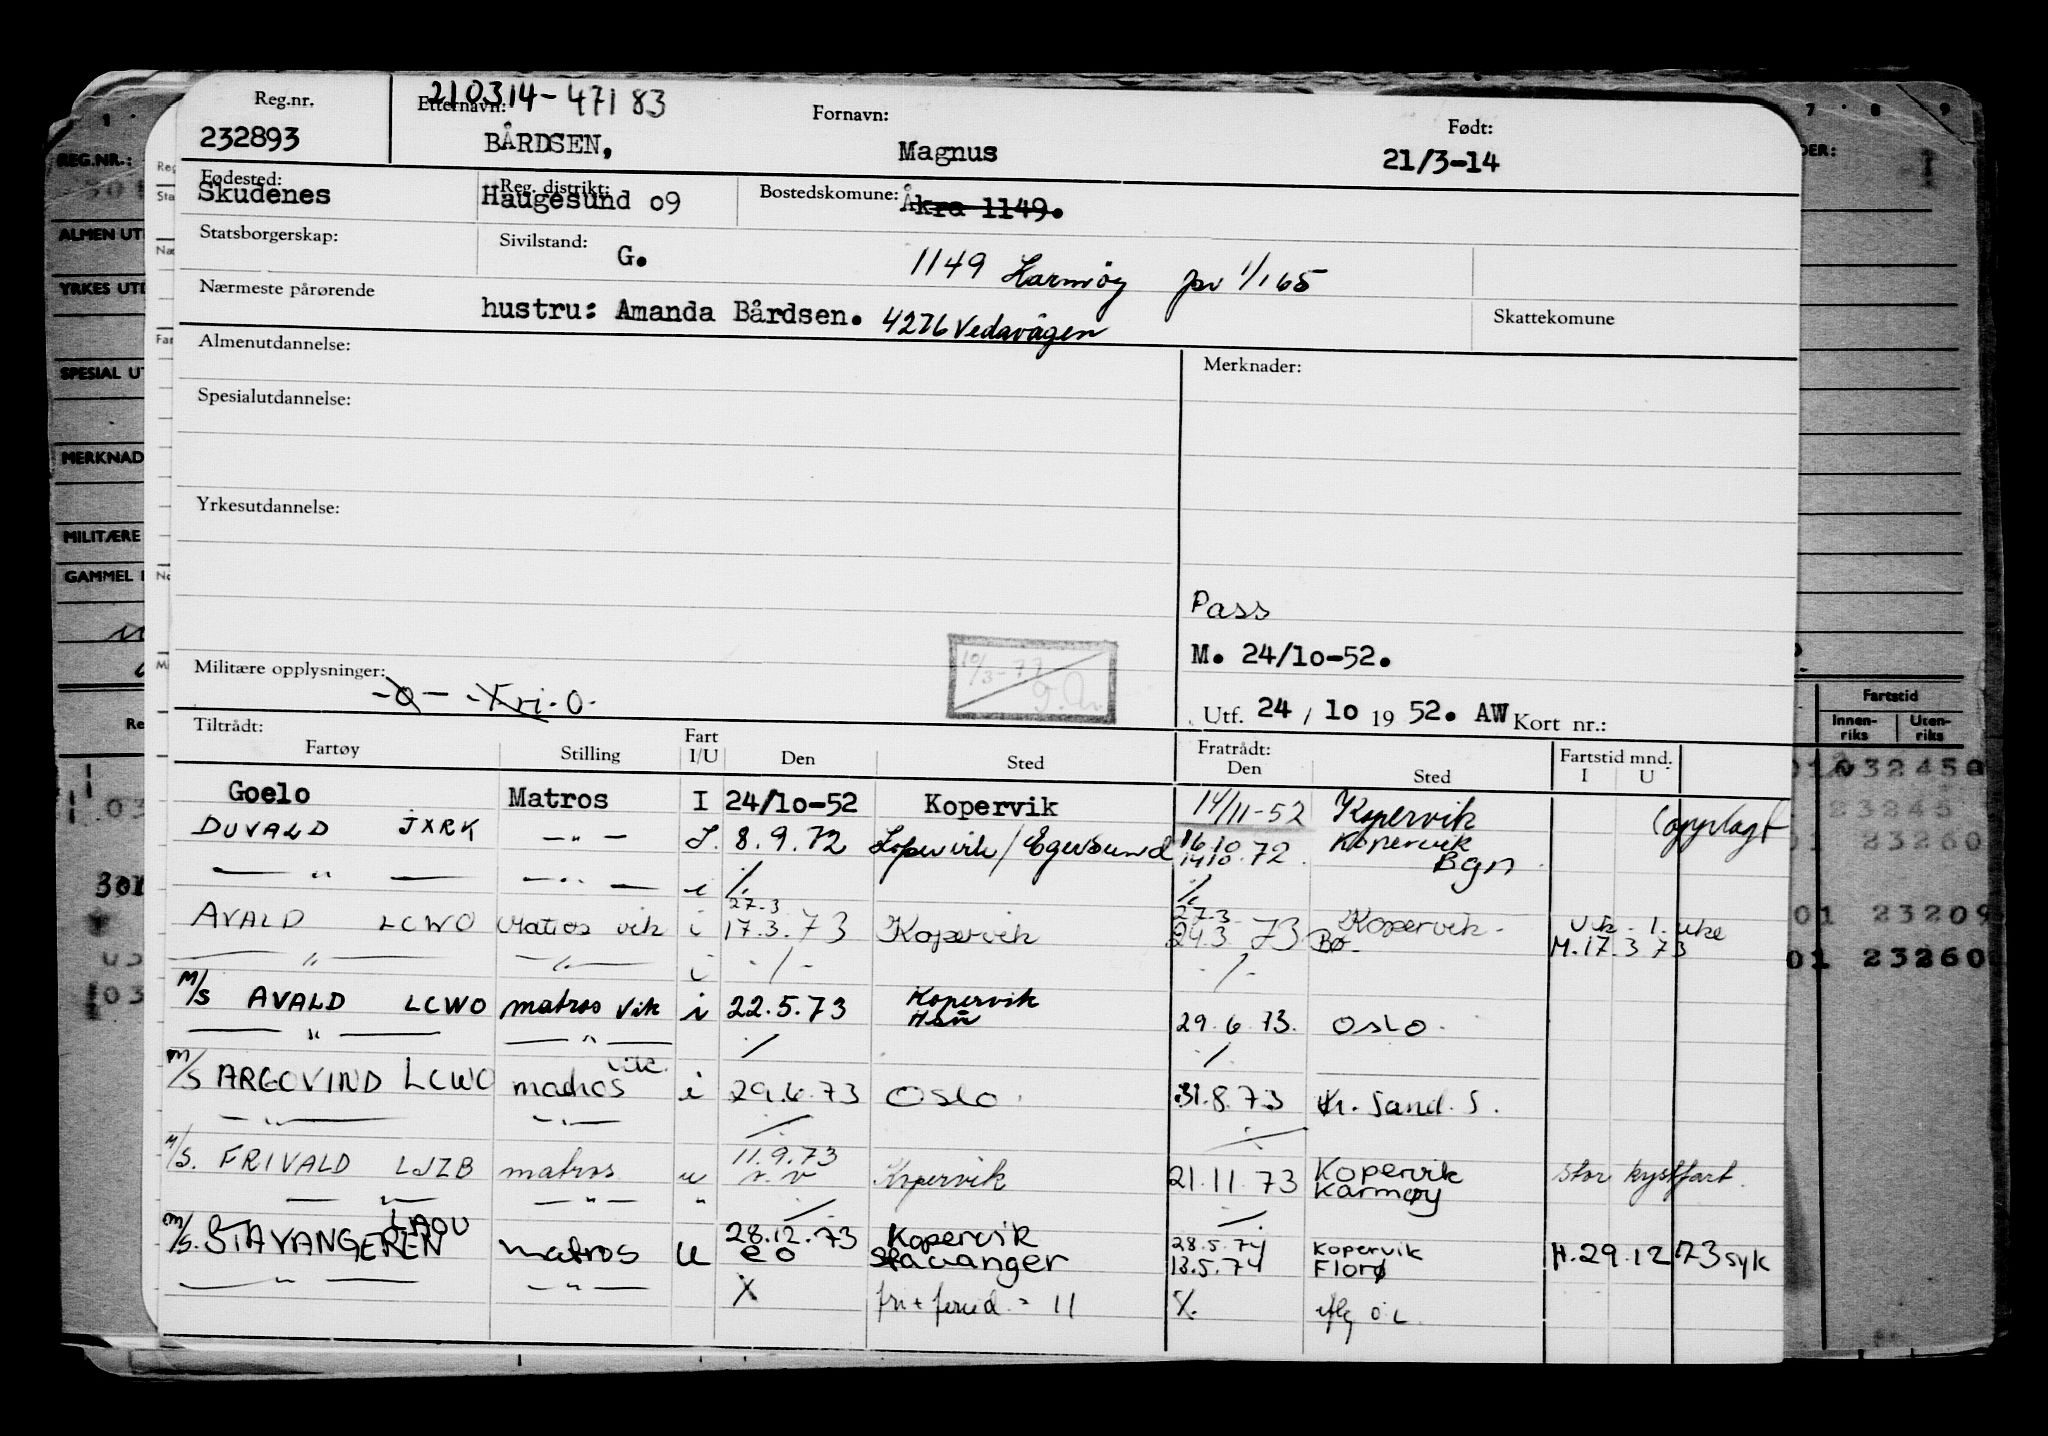 Reg.nr. Etternavn: 210314-47183 Fornavn: Født:
232893 BÅRDSEN, Magnus 21/3-14
Fødested: Reg. distrikt: Bostedskomune:
Skudenes Haugesund o9 Åkra 1149.
Statsborgerskap: Sivilstand: G. 1149 Karmøy pr 1/1 65
Nærmeste pårørende hustru: Amanda Bårdsen. 4276 Vedavågen Skattekomune
Almenutdannelse: Merknader:
Spesialutdannelse:
Yrkesutdannelse:
Pass
M. 24/10-52.
Militære opplysninger: -0- -Fri. 0- 10/3-73
Utf. 24 / 10 19 52. AW Kort nr.:
Tiltrådt: Fratrådt:
Fartøy Stilling Fart I/U Den Sted Den Sted Fartstid mnd. I U
Goelo Matros I 24/10-52 Kopervik 14/11-52 Kopervik (opplagt
DUVALD JXRK -"- I. 8.9.72 Kopervik/Egersund 16.10 14.10.72. Kopervik Bgn
-"- -"- i ./.  ./.
AVALD LCWO Matros vik i 27.3 17.3.73 Kopervik 27.3 24.3 73 Kopervik- Bø- Vik. 1. uke M.17.3 73
-"- -"- i -/- -/-
M/S AVALD LCWO matros vik i 22.5.73 Kopervik Hsn 29.6.73. OSLO.
-"- -"- ./. ./.
M/S ARGOVIND LCWO matros vik. i 29.6.73 OSLO. 31.8.73 Kr. Sand. S.
-"- -"- ./. ./.
M/S. FRIVALD LJZB matros u 11.9.73 Kopervik 21.11.73 Kopervik Karmøy Stor kystfart.
-"- -"- " ./. ./.
M/S. STAVANGEREN LAOU matros U 28.12.73 eo Kopervik Stavanger 28.5.74 13.5.74 Kopervik Florø M.29.12 73 syk
-"- -"- X fri + feried. = 11 ./.
REG.NR.:
ALMEN UT
YRKES UTD
SPESIAL UT
MERKNAD
MILITÆRE
GAMMEL
Fartstid
Innen-riks Uten-riks